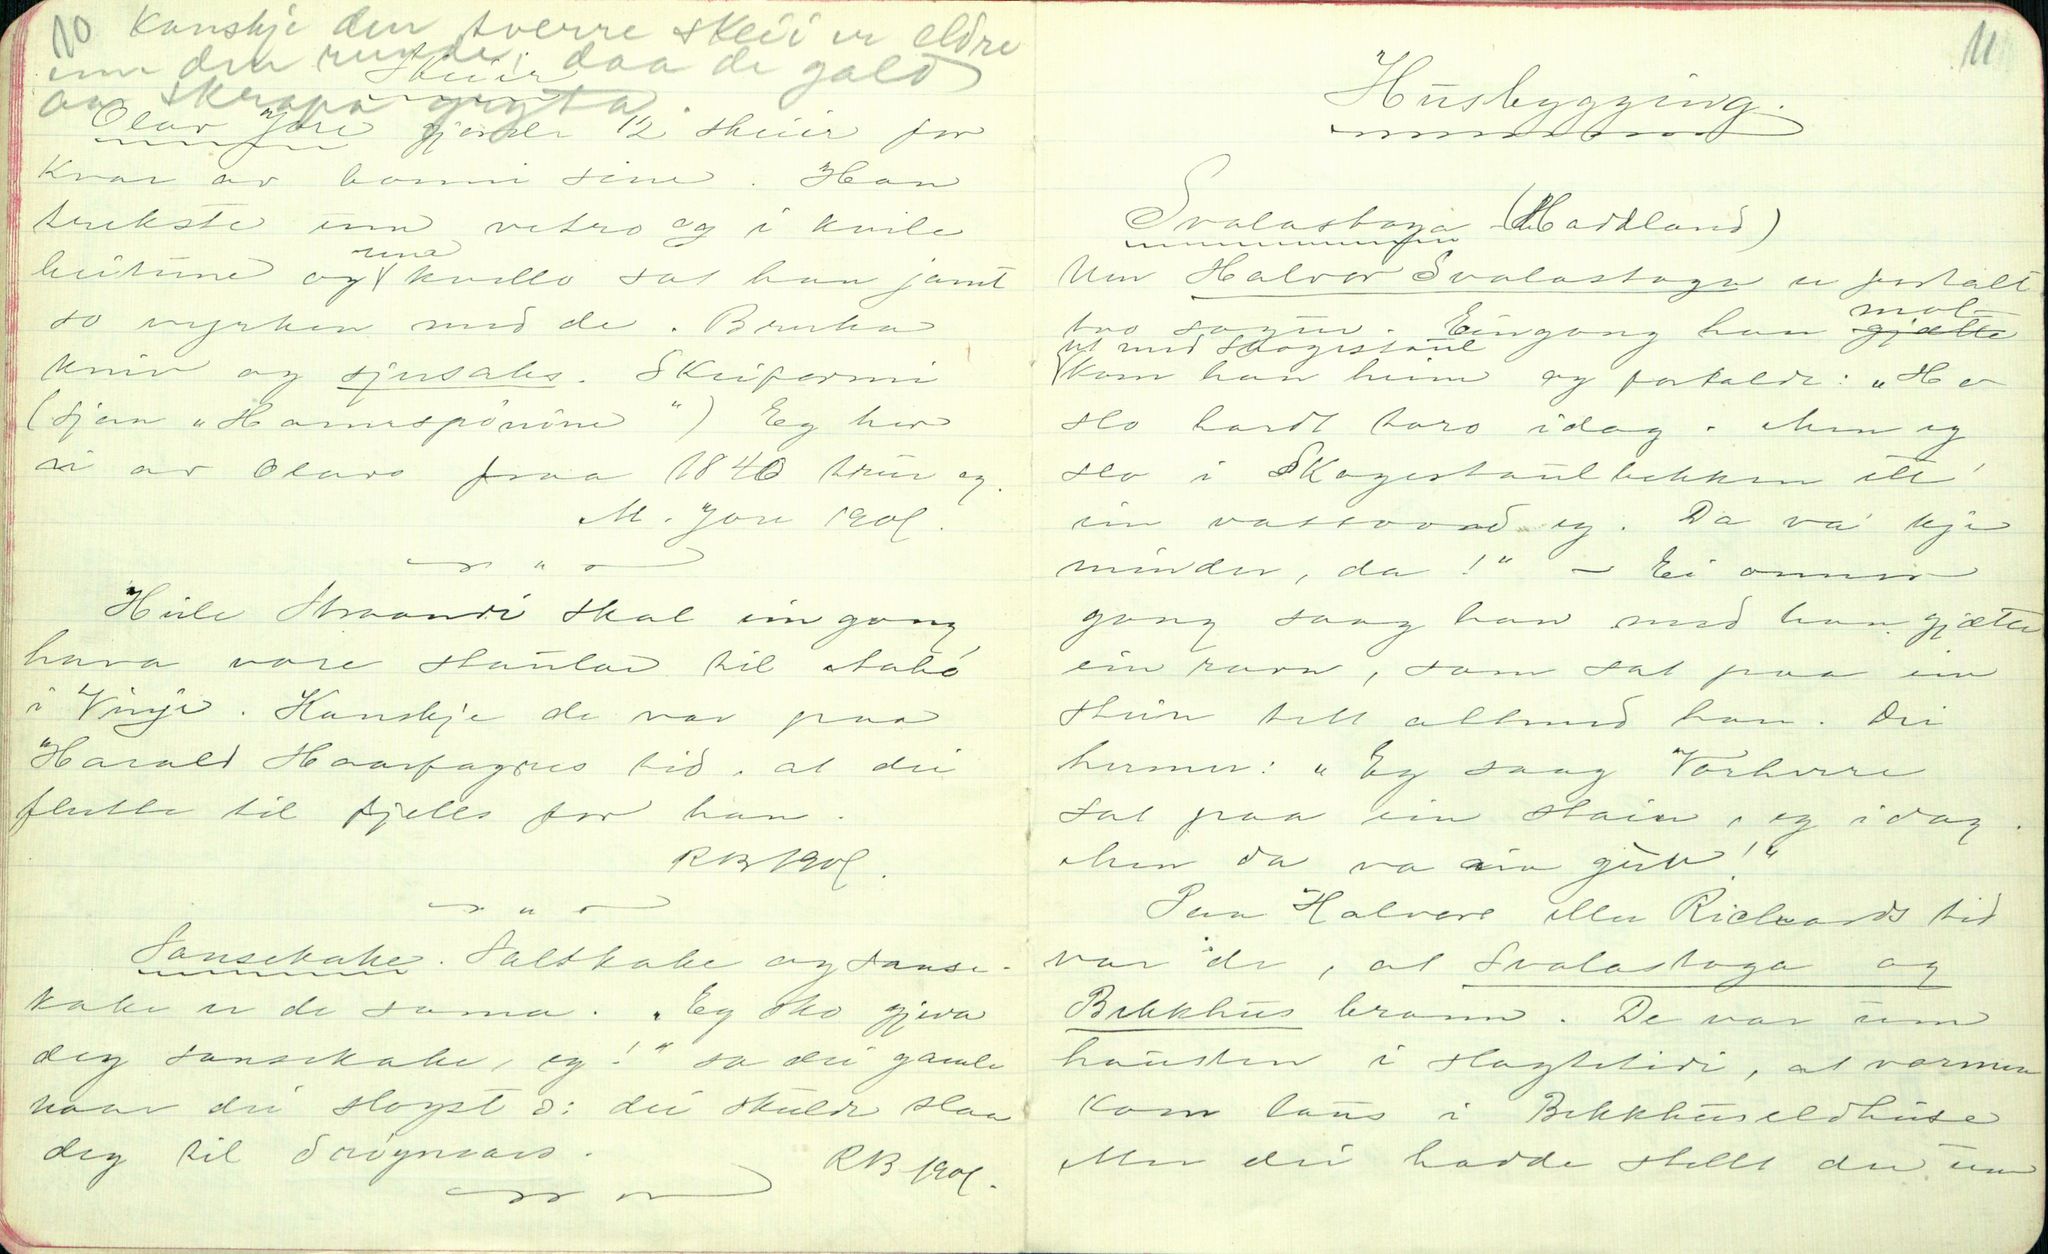 10 Kanskje den tverre skeii er eldre
enn den runde, daa de galdt
aa skrapa gryta.
Skeiir
Olav Jore gjorde 12 skeiir for
kvar av borni sine. Han
teikste um vetro og i kvile
beitune og rune kvello sat han jamt
so vyrken med de. Bruka
kniv og sjusaks. Skeiformi
(sjaa "Hornspóníne") Eg hev
ei av Olavs fraa 1840 truir eg.
M. Jore 1901.
Heile Straandi skal ein gong
hava vore staular til Aabó
i Vinje. Kanskje de var paa
Harald Haarfagres tid, at dei
flutte til fjells for han.
RB 1901.
Sansekake. Saltkake og sanse-
kake er de sama. "Eg sko gjeva
deg sansekake, eg!" sa dei gamle
naar dei slogst ɔ: dei skulde slaa
deg til
RB 1901.
11
Husbygging.
Svalastoga (Haddland)
Um Halvor Svalastoga er fortalt
tvo sogur. Eingong han mol gjætte
ut med Skogestaul
kom han heim og fortalde: "He
slo hardt toro idag. Men eg
slo i Skogestaulbekken ette'
ein vassvond eg. Da va' kje
minder, da!" – Ei onnor
gong saag han med han gjætte
ein ravn, som sat paa ein
stein tett attmed han. Dei
hermer: "Eg saag Vorherre
sat paa ein stain, eg idag.
Men da va ain gut!"
Paa Halvors eller Richards tid
var de, at Svalastoga og
Bekkhus brann. De var um
hausten i slagtetidi, at varmen
kom laus i Bekkhuseldhuse
Men dei hadde stellt der um